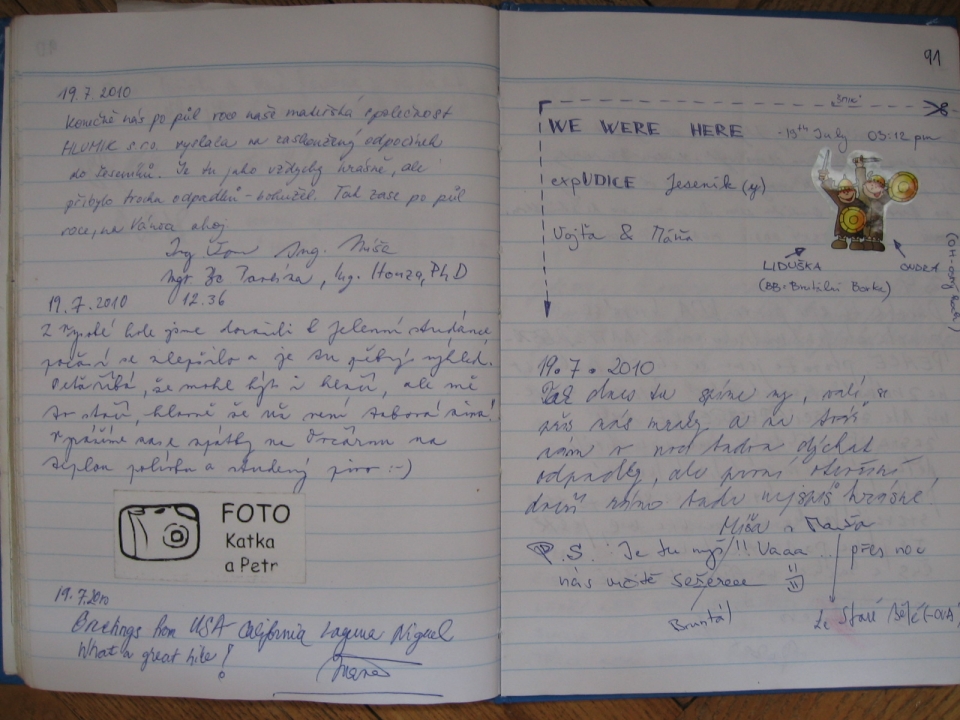 19.7.2010
Konečně nás po půl roce naše mateřská společnost
HLUMIK s.r.o. vyslala na zasloužený odpočinek
do Jeseníků. Je tu jako vždycky krásně, ale
přibylo trochu odpadků - bohužel. Tak zase po půl
roce, na Vánoce ahoj
Ing. Ing. Míša
Mgr Bc Pavlína, Ing. Honza, PhD
19.7.2010 12.36
Z hole jsme dorazili k jelení studánce
počasí se zlepšilo a je tu pěkný výhled.
že mohl být i hezčí, ale mě
to stačí, hlavně že už není taková zima!
zpátky na Ovčárnu na
teplou polívku a studený pivo :-)
FOTO
Katka
a Petr
19.7.2010
Greetings from USA California Laguna Niguel
What a great hike!
91
WE WERE HERE - 19th July 03:12 pm
expUDICE Jeseník (y)
Vojťa & Máňa
LIDUŠKA
(BB=Brutální Borka)
ONDRA
19.7.2010
Tak dnes tu spíme my, valí se
na nás mraky a
nám v noci budou dýchat
odpadky, ale první otevření
dveří ráno bude nejspíš krásné
Míša a Marťa
P.S.: Je tu myš!! Vaaa přes noc
nás určitě sežereee
Bruntál
Ze Staré Bělé (-OVA)